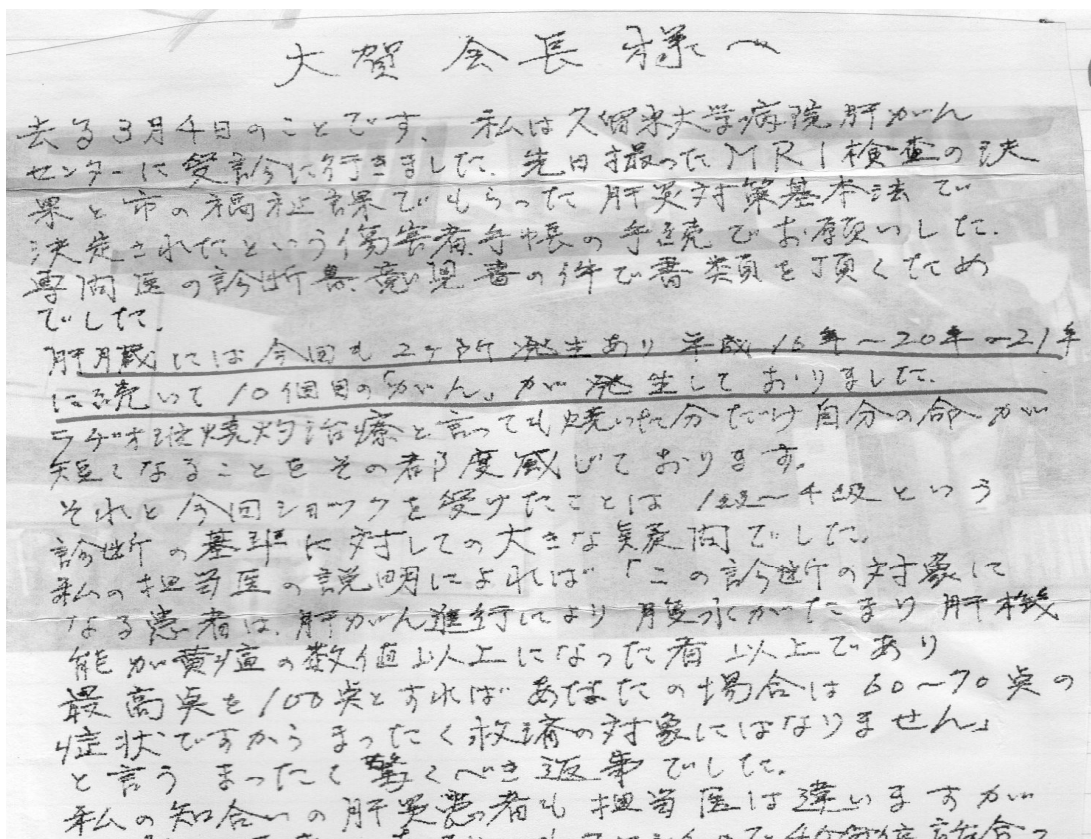 大賀会長様へ
去る3月4日のことです、私は久留米大学病院肝がん
センターに受診に行きました、先日撮ったMRI検査の決
果と市の福祉課でもらった肝炎対策基本法で
決定されたという傷害者手帳の手続でお願いした.
専門医の診断書、意見書の件で書類を頂くため
でした.
肝月蔵には今回も2ヶ所発生あり平成16年〜20年〜21年
に続いて10個目の「がん」が発生しておりました.
ラヂオ波焼灼治療と言っても焼いた分だけ自分の命が
短くなることをその都度感じております.
それと今回ショックを受けたことは1級〜4級という
診断の基準に対しての大きな疑問でした.
私の担当医の説明によれば「この診断の対象に
なる患者は、肝がん進行により腹水がたまり肝機
能が黄疸の数値以上になった者以上であり
最高点を100点とすればあなたの場合は60〜70点の
症状ですからまったく救済の対象にはなりません」
と言うまったく驚くべき返事でした.
私の知合いの肝炎患者も担当医は違いますが